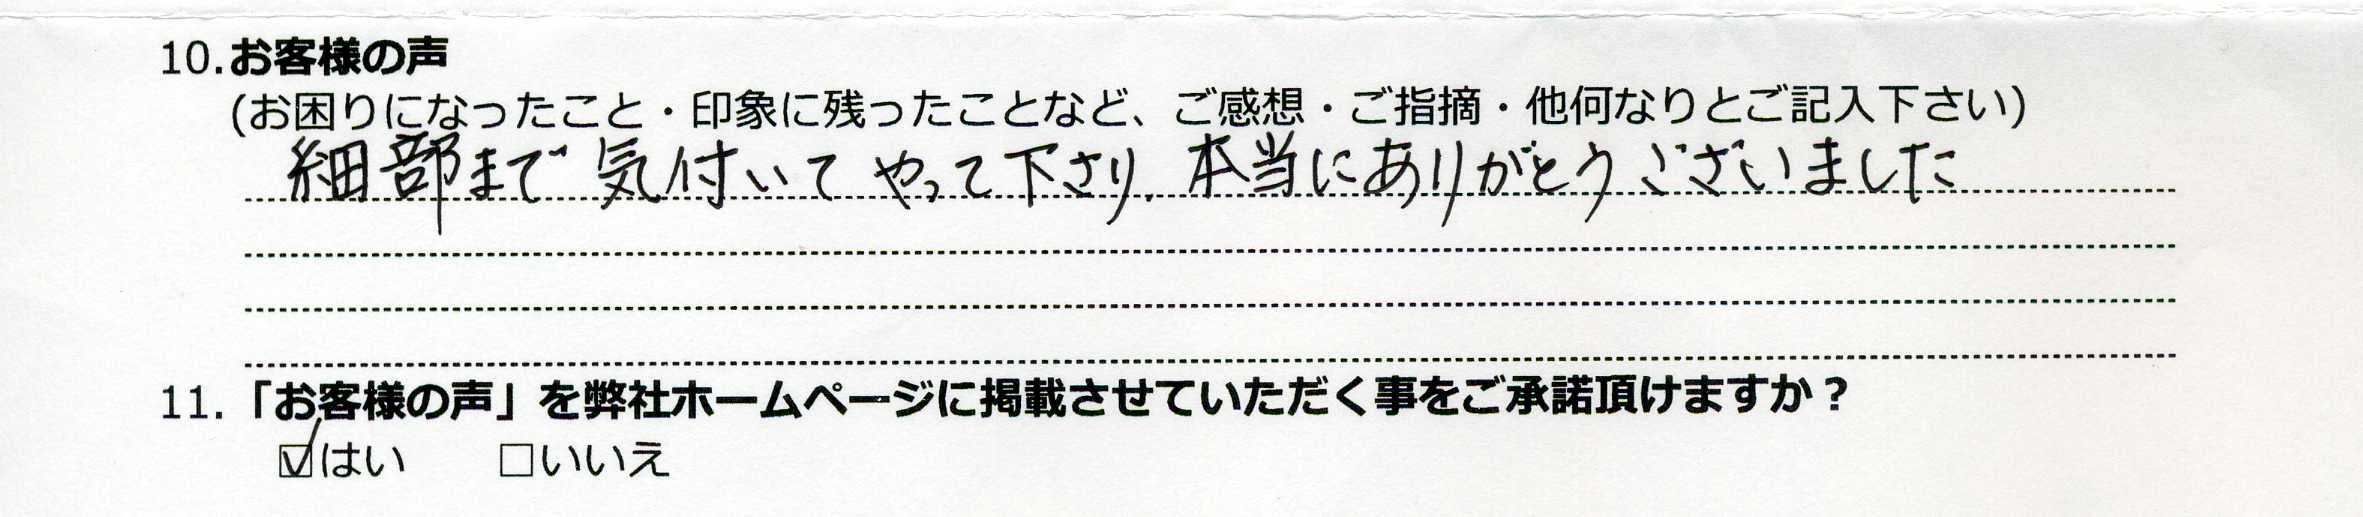 10.お客様の声
(お困りになったこと・印象に残ったことなど、ご感想・ご指摘・他何なりとご記入下さい)
細部まで気付いてやって下さり、本当にありがとうございました
11.「お客様の声」を弊社ホームページに掲載させていただく事をご承諾頂けますか？
☑はい　　□いいえ